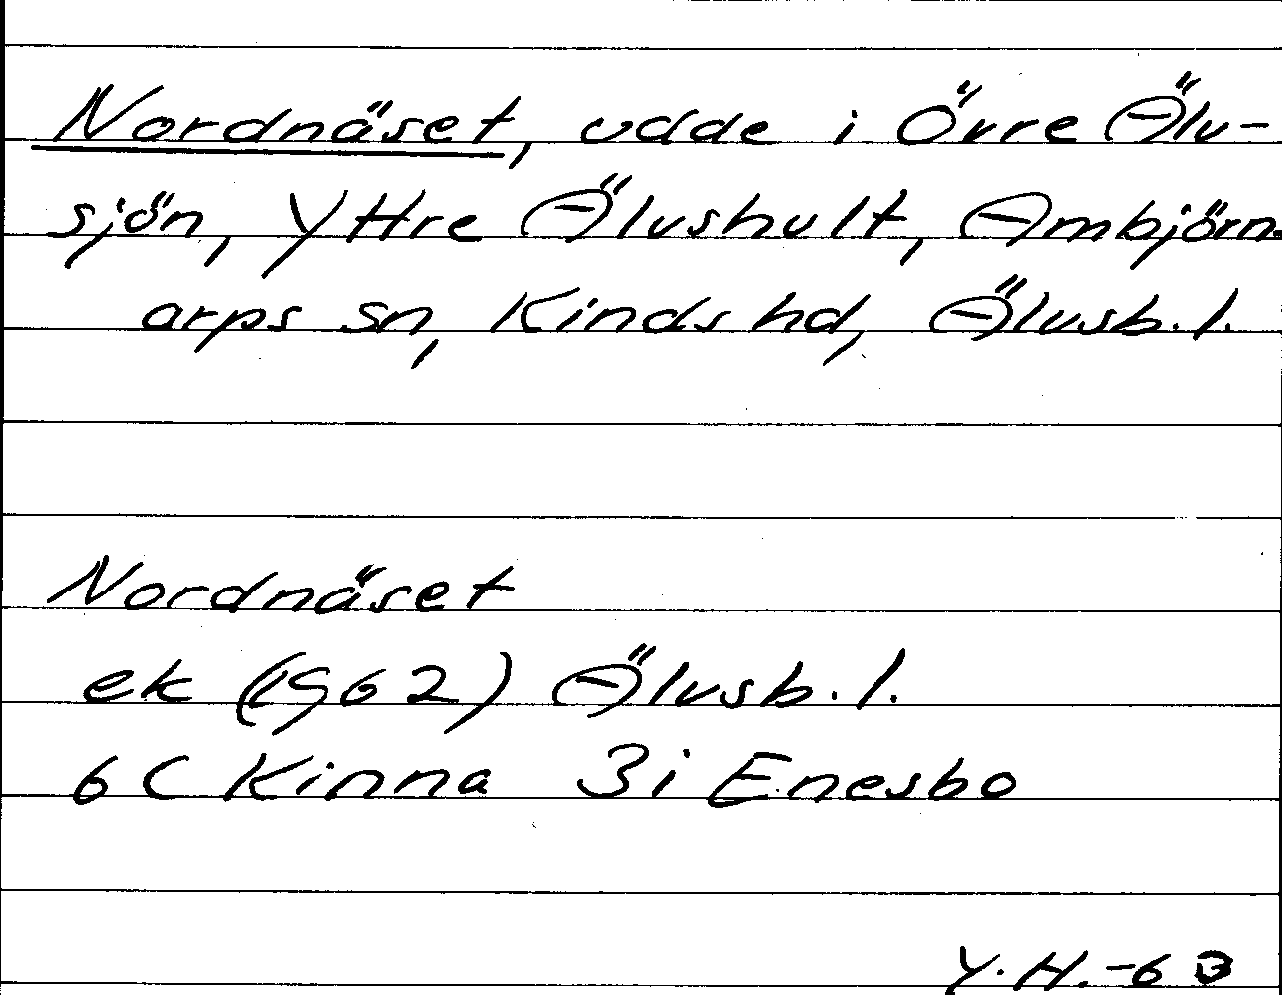 Nordnäset, udde i Övre Älv-
sjön, Yttre Älvshult, Ambjörn-
arps sn, Kinds hd, Älvsb. l.
Nordnäset
ek (1962) Älvsb. l.
6 C Kinna 3i Enesbo
Y. H. -63